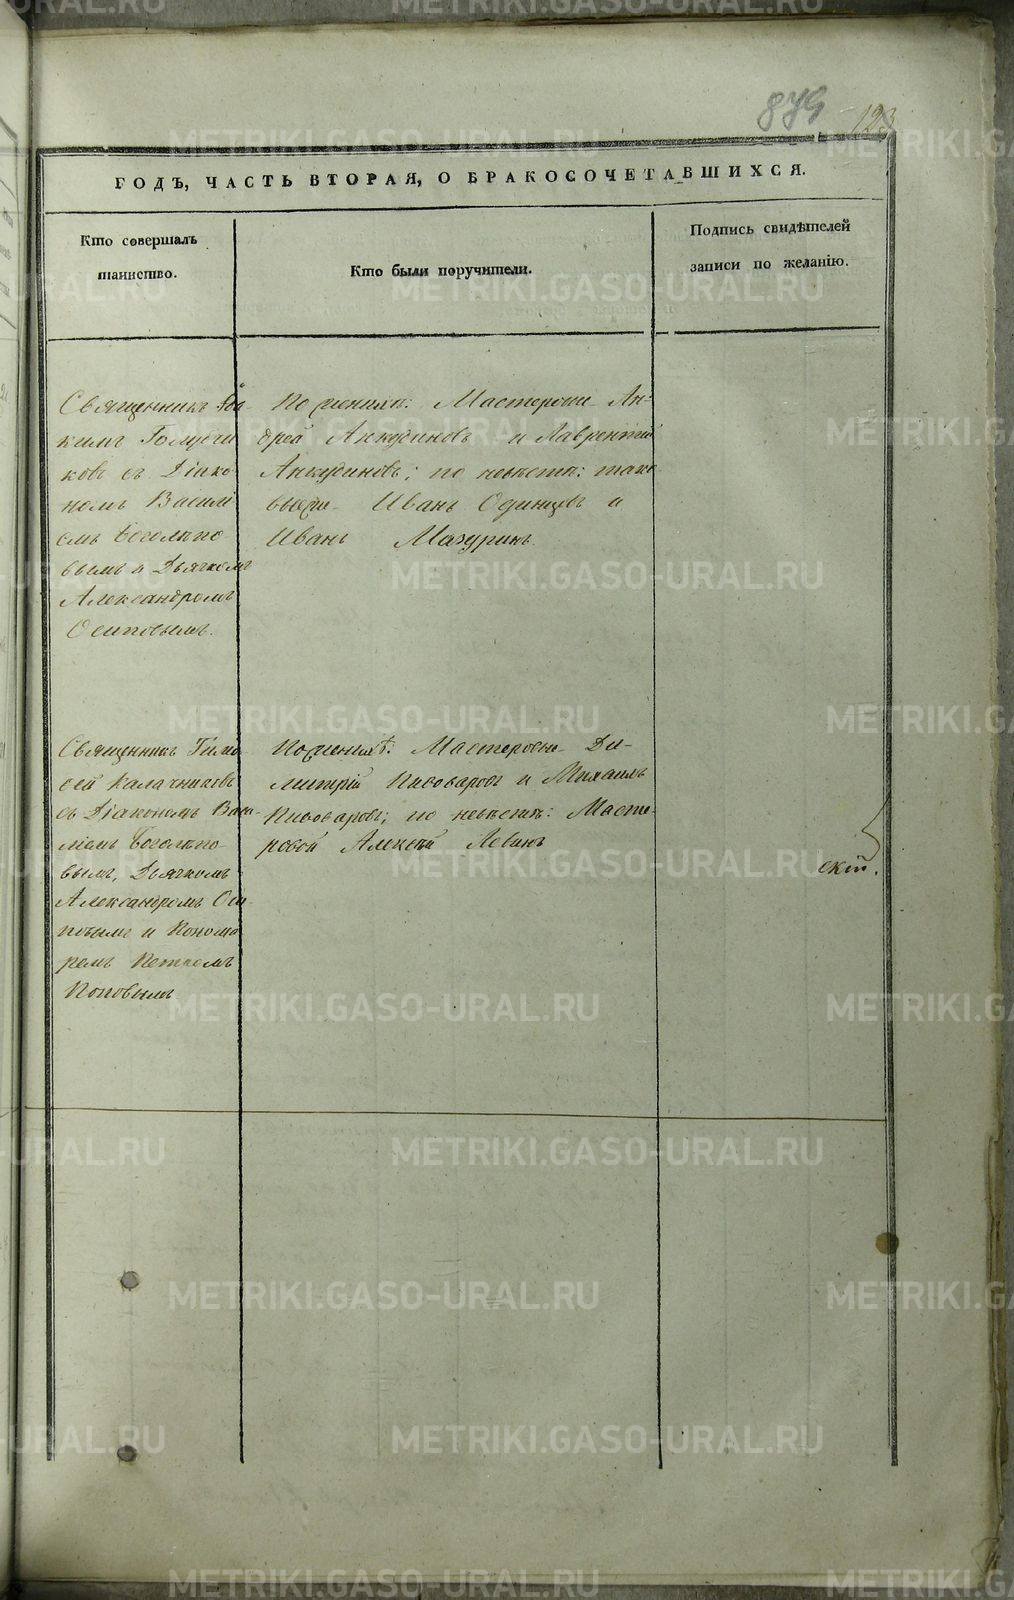 879 123
ГОДЪ, ЧАСТЬ ВТОРАЯ, О БРАКОСОЧЕТАВШИХСЯ.
Кто совершалъ
таинство.
Кто были поручители.
Подпись свидѣтелей
записи по желанію.
Священникъ Іоа
кимъ Голубчи
ковъ съ Діако
номъ Василі
емъ Боголѣпо
вымъ и Дьячкомъ
Александромъ
Осиповымъ.
По женихѣ: Мастеровые Ан-
дрей Анкудиновъ и Лаврентій
Анкудиновъ; по невѣстѣ: тако
выеже Иванъ Одинцовъ и
Иванъ Мазуринъ.
Священникъ Тимо
ѳей Калачниковъ
съ Діакономъ Васи-
ліемъ Боголѣпо-
вымъ, Дьячкомъ
Александромъ Оси-
повымъ и Пономо
ремъ Петромъ
Поповымъ
По женихѣ: Мастеровые Ди-
митрій Пивоваровъ и Михаилъ
Пивоваровъ; по невѣстѣ: Масте-
ровой Алексѣй Левинъ
скій.
METRIKI.GASO-URAL.RU